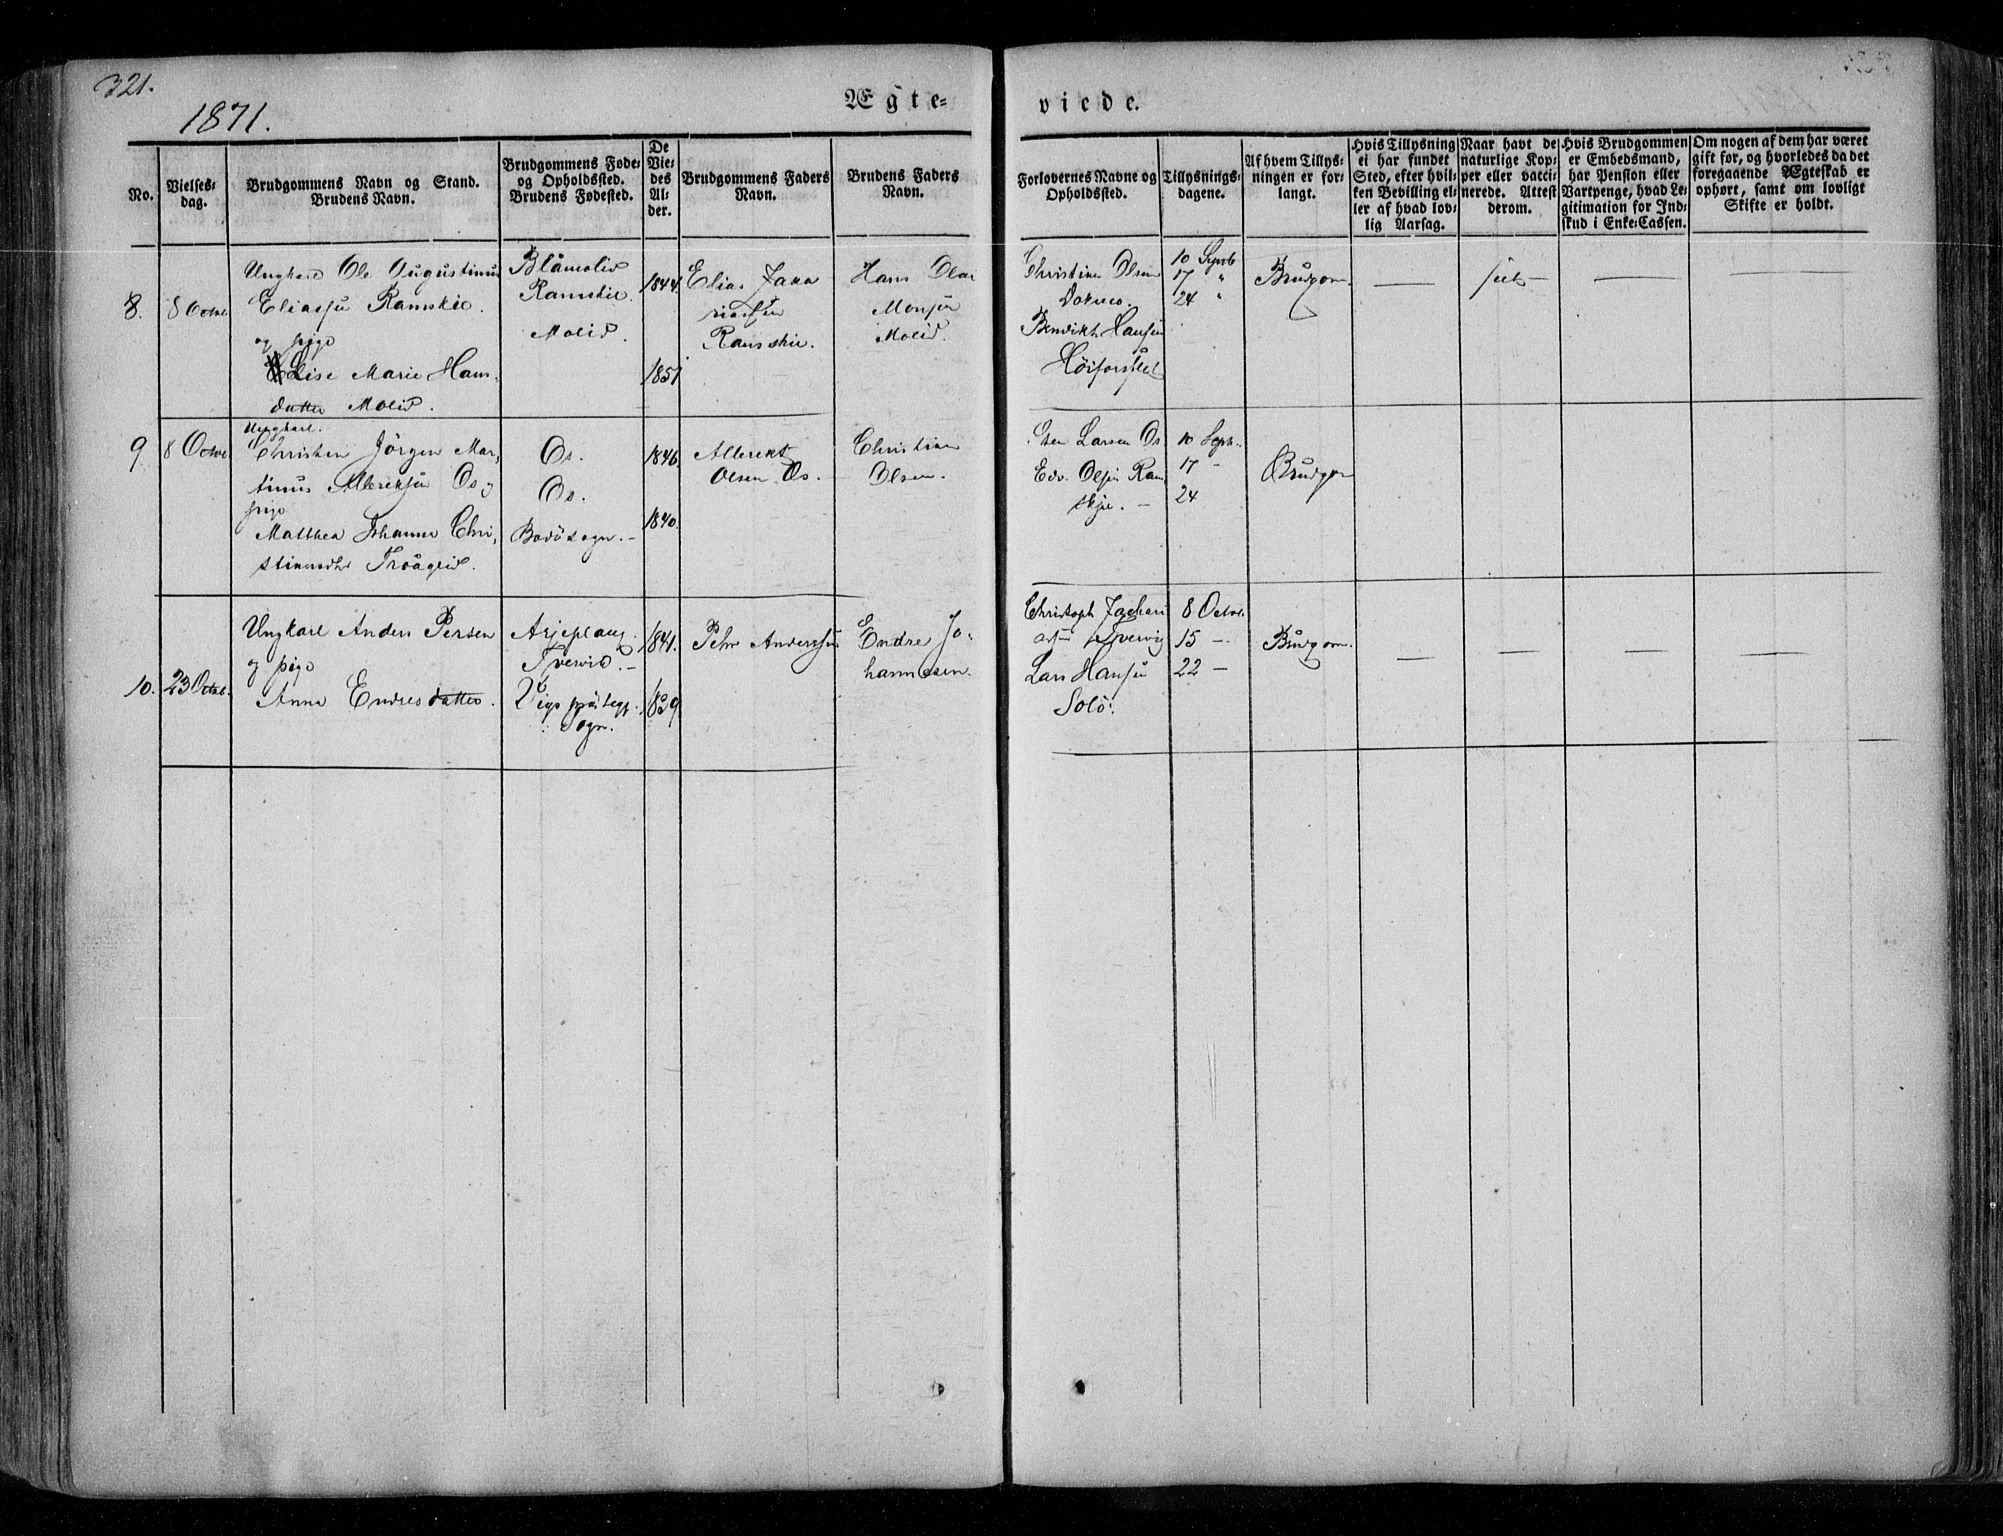 321.
1871.
Ægte=
viede.
No.
Vielses=
dag.
Brudgommens Navn og Stand.
Brudens Navn.
Brudgommens Føde=
og Opholdssted.
Brudens Fødested.
De
Vie=
des
Al=
der.
Brudgommens Faders
Navn.
Brudens Faders
Navn.
Forlovernes Navne og
Opholdssted.
Tillysnings=
dagene.
Af hvem Tillys=
ningen er for=
langt.
Hvis Tillysning
ei har fundet
Sted, efter hvil=
ken Bevilling el=
ler af hvad lov=
lig Aarsag.
Naar havt de
naturlige Kop=
per eller vacci=
nerede. Attest
derom.
Hvis Brudgommen
er Embedsmand,
har Pension eller
Vartpenge, hvad Le=
gitimation for Ind=
skud i Enke=Cassen.
Om nogen af dem har været
gift for, og hvorledes da det
foregaaende Ægteskab er
ophørt, samt om lovligt
Skifte er holdt.
8.
8 Octbr
Ungkarl Ole Augustinus
Eliassen Ramskie.
og pige
Elise Marie Hans
datter Molid.
Blåmolid
Ramskie.
Molid.
1844.
1851
Elias Zaka
riassen
Ramskie.
Hans Olai
Monsen
Molid.
Christian Olsen
Bendikt Hansen
10 Septb
17 "
24 "
Brudgom.
—
—
—
9
8 Octbr
Ungkarl.
Christen Jörgen Mar,
tinus Albriktsen Os,
pige
Matthea Johanna Chri,
stiansdtr Tröåglid.
Os.
Os.
Bodö sogn. –
1846.
1840.
Albrekt
Olsen Os.
Christian
Olsen.
Larsen Os
Edv. Olsen Ram
skje. –
10 Septb.
17 –
24
Brudgom
10.
23 Octbr.
Ungkarl Anders Persen
og pige
Anna Endresdatter.
Arjeplaug.
Tvervid. –
Sogn.
1841.
1839.
Pehr Anderssen
Endre Jo=
hannesen.
Christoph Zachari
assen Tvervig
Lars Hansen
Solö.
8 Octbr.
15 –
22 –
Brudgom.
—
—
—
—